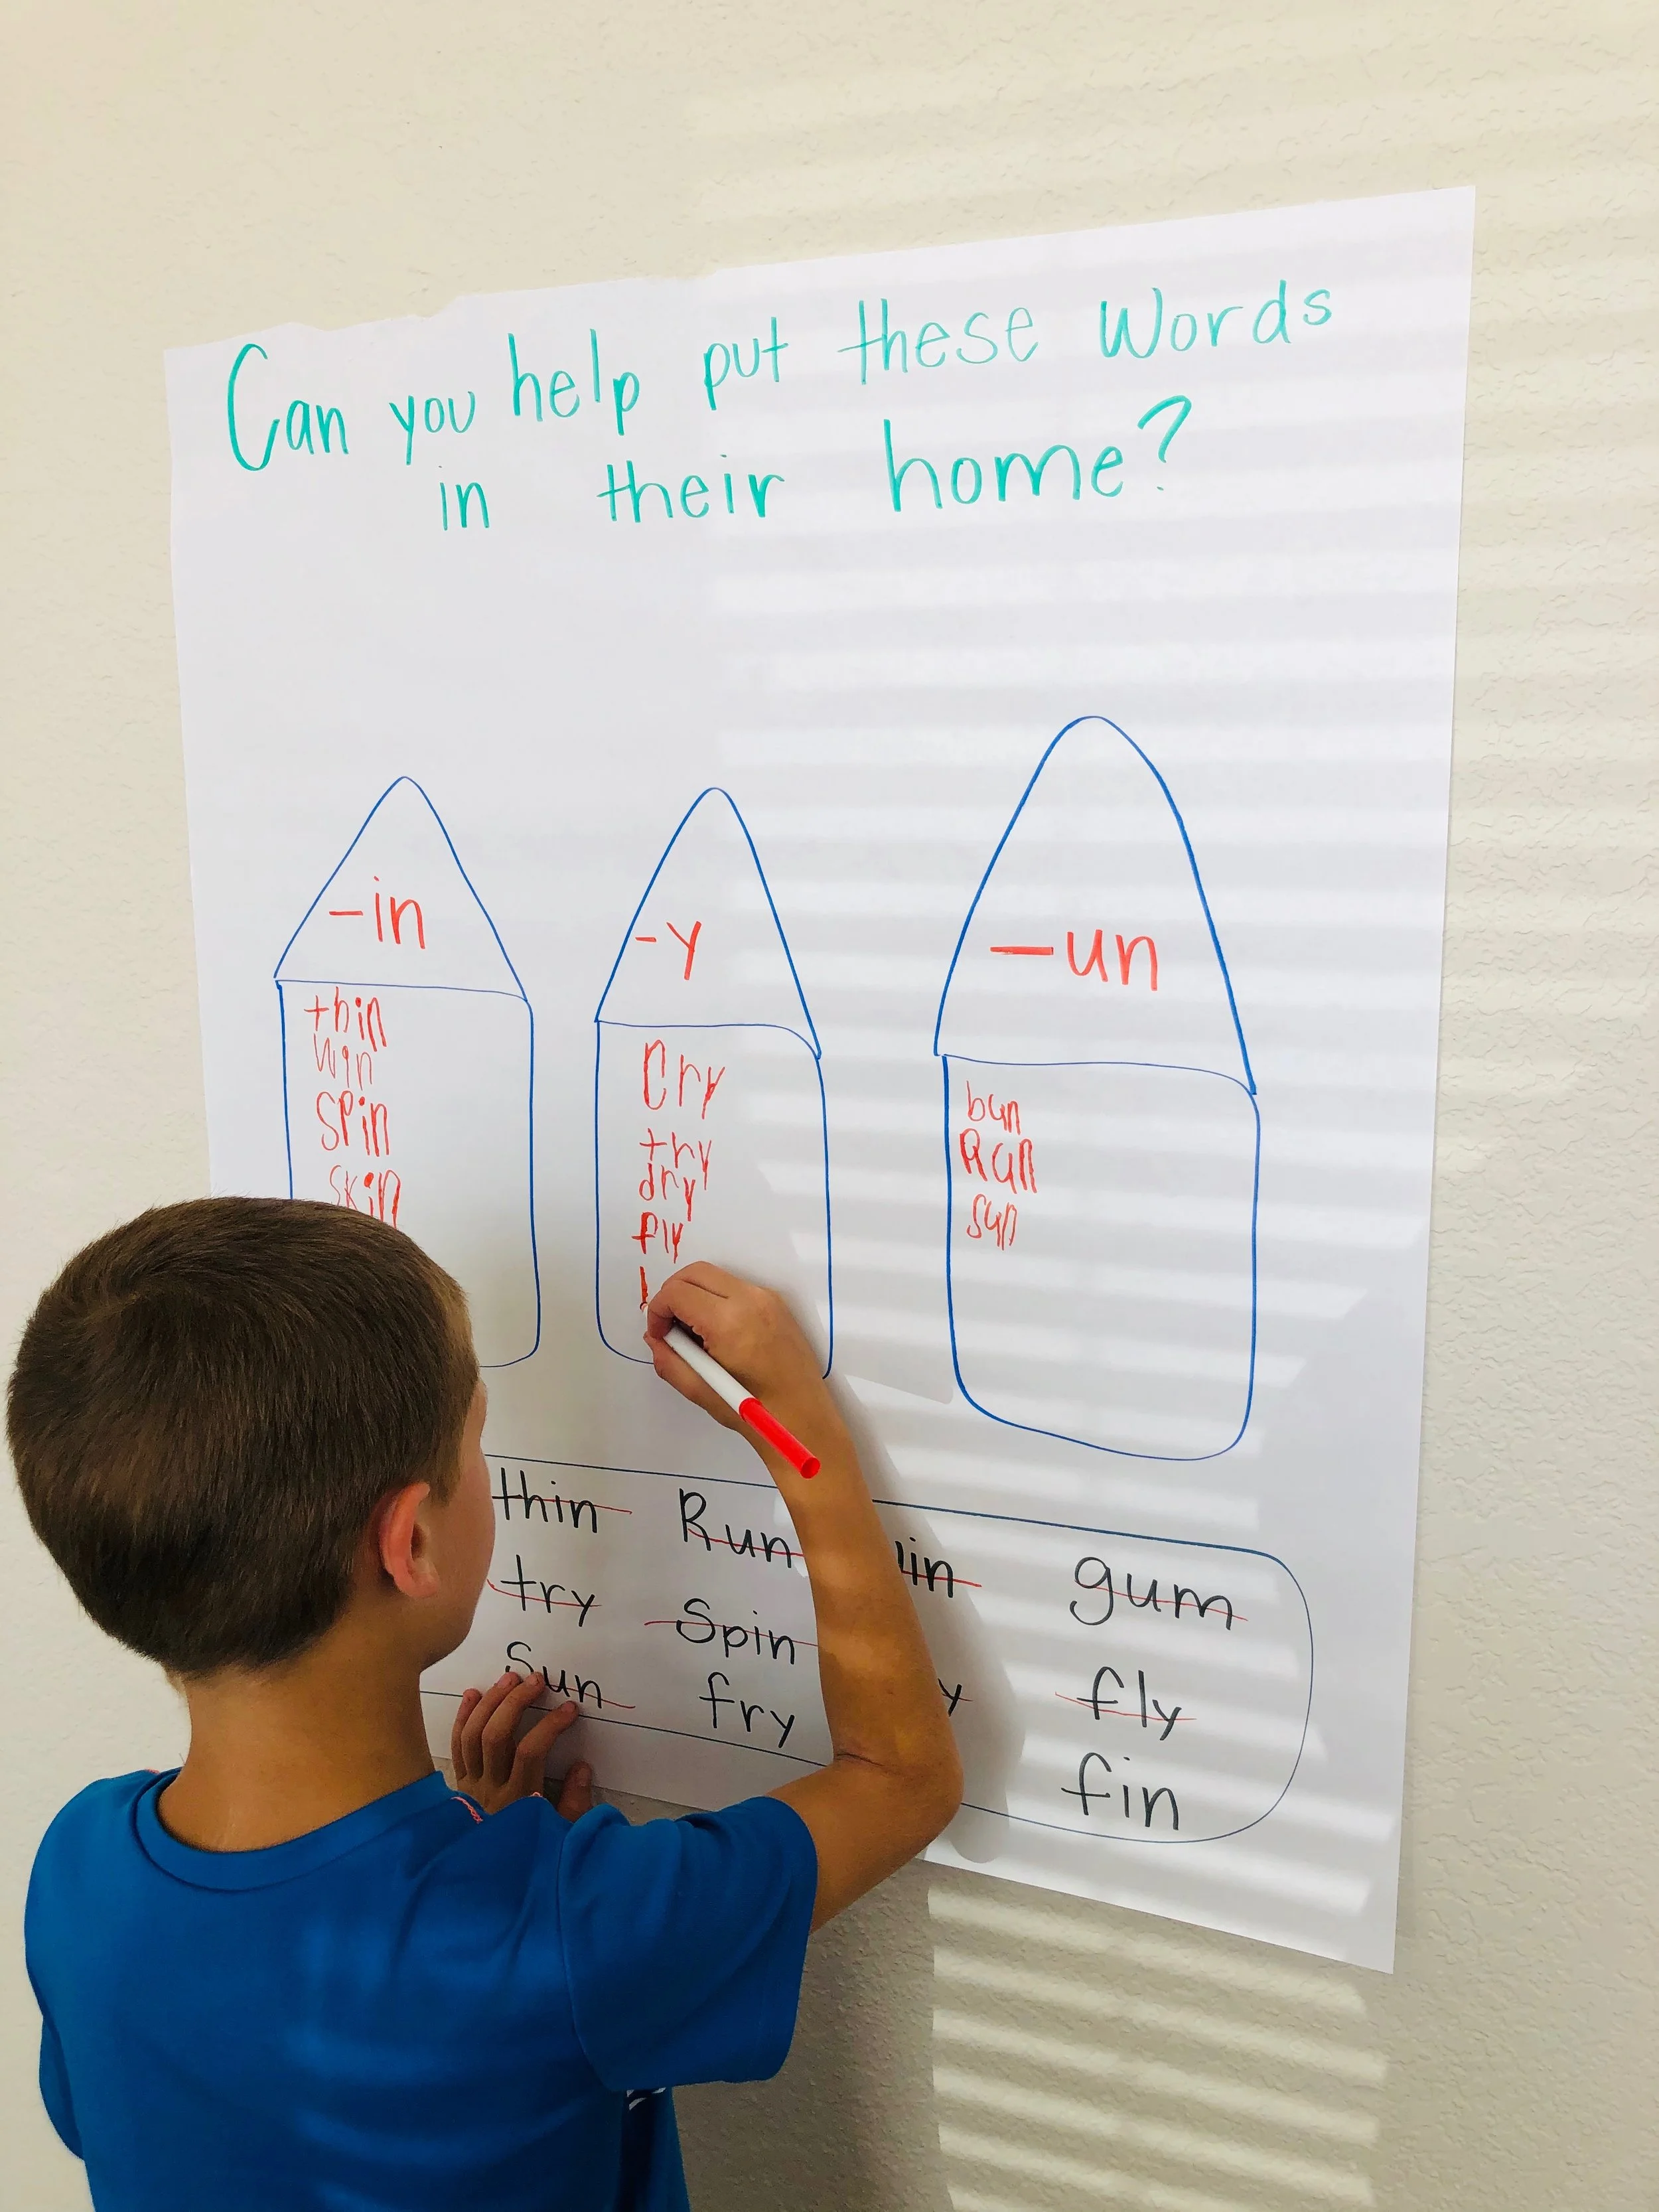 Can you help put these Words
in their home?
-in
-y
-un
thin
win
spin
skin
Cry
try
dry
fly
bun
Run
sun
thin Run gum
try Spin fly
Sun fry fin